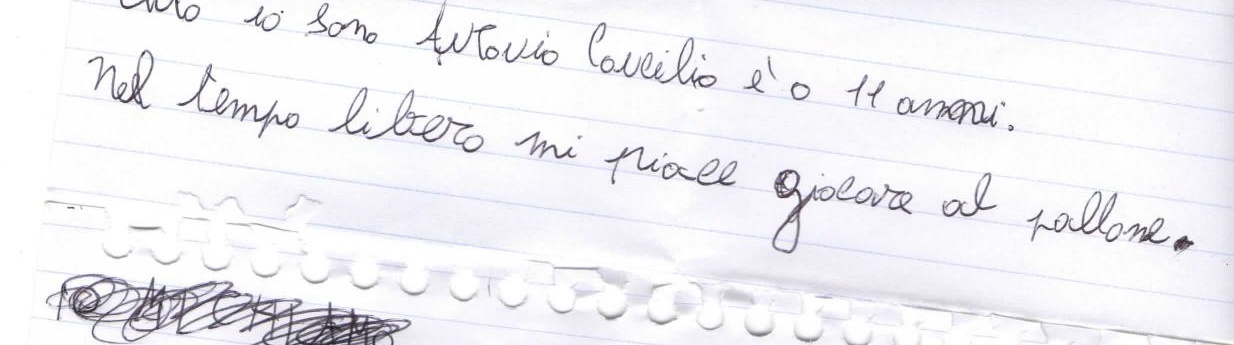 io sono Antonio Caucilio è o 11 anni.
Nel tempo libero mi piace giocare al pallone.